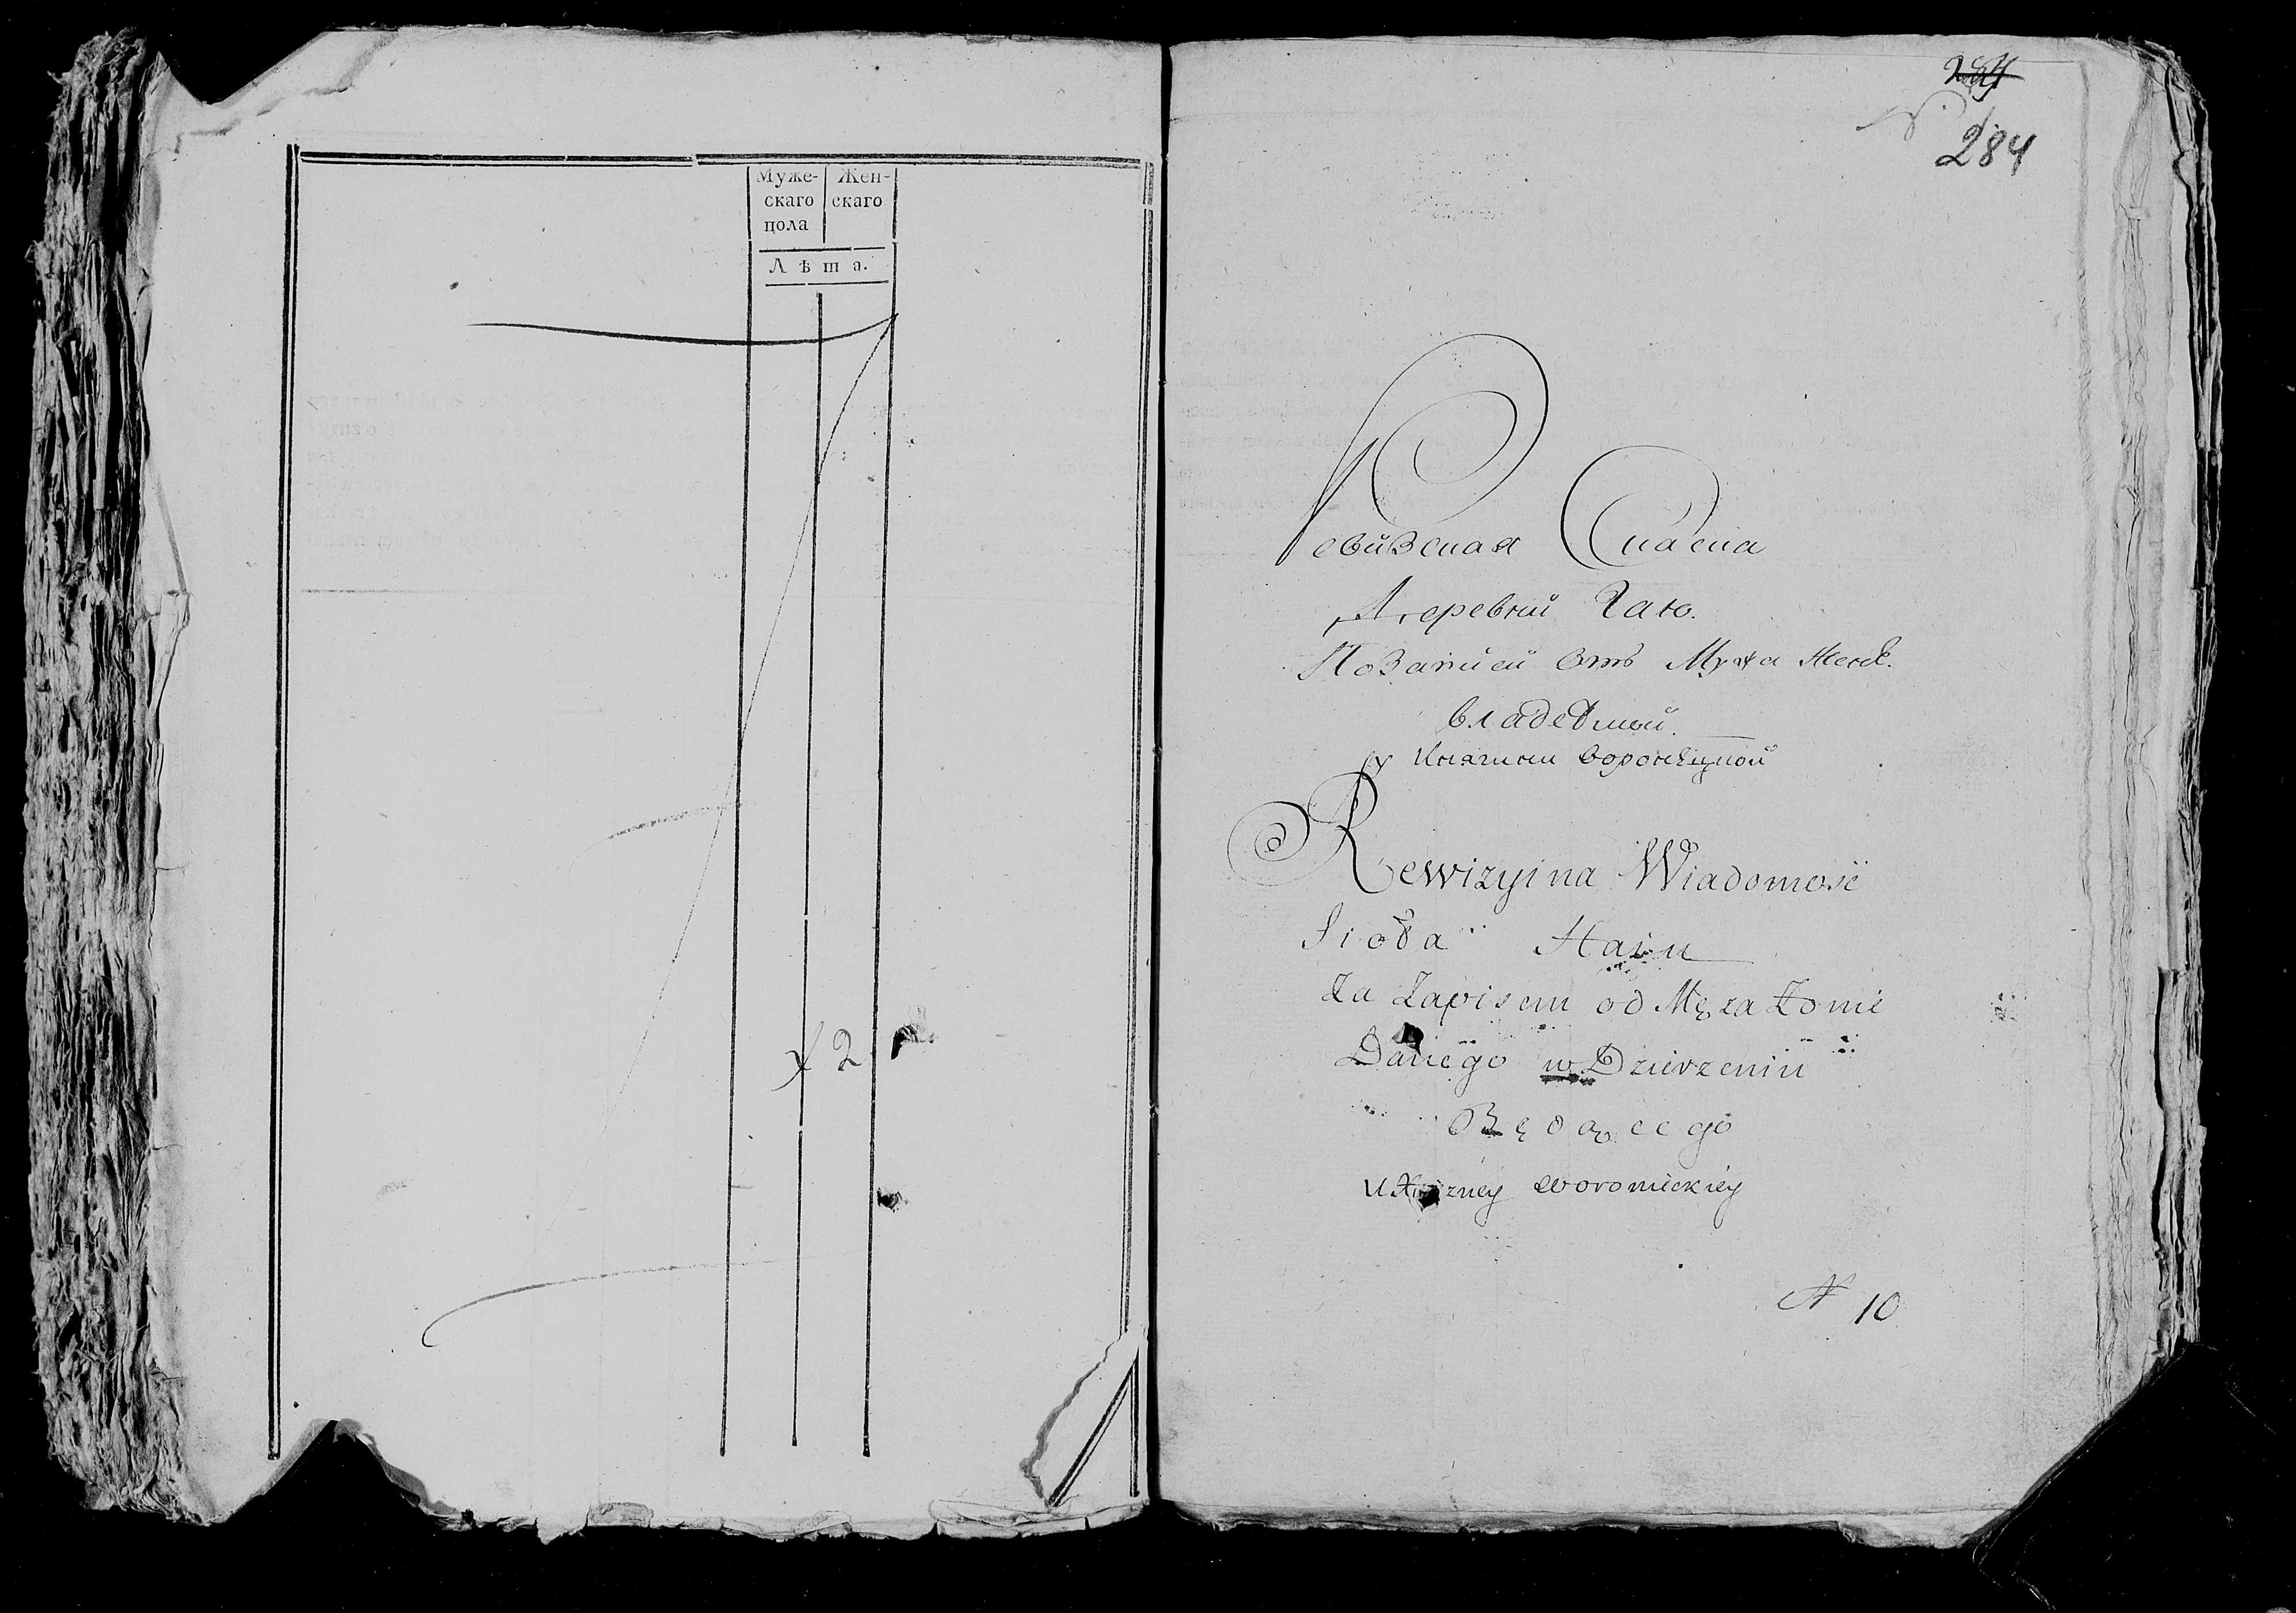 Муже- Жен-
скаго скаго
пола
Лѣта.
2
284
Ревизская Сказка
Деревни Гаю.
По Записи Отъ Мужа Женѣ.
владеемой
у Княгини воронѣцкой
Rewizyina Wiadomość
Sioła Haiu
Za Zapisem od Męża Żonie
Danego w Dzierzeniu
Będącego
U Xiężney woronieckiey
N 10